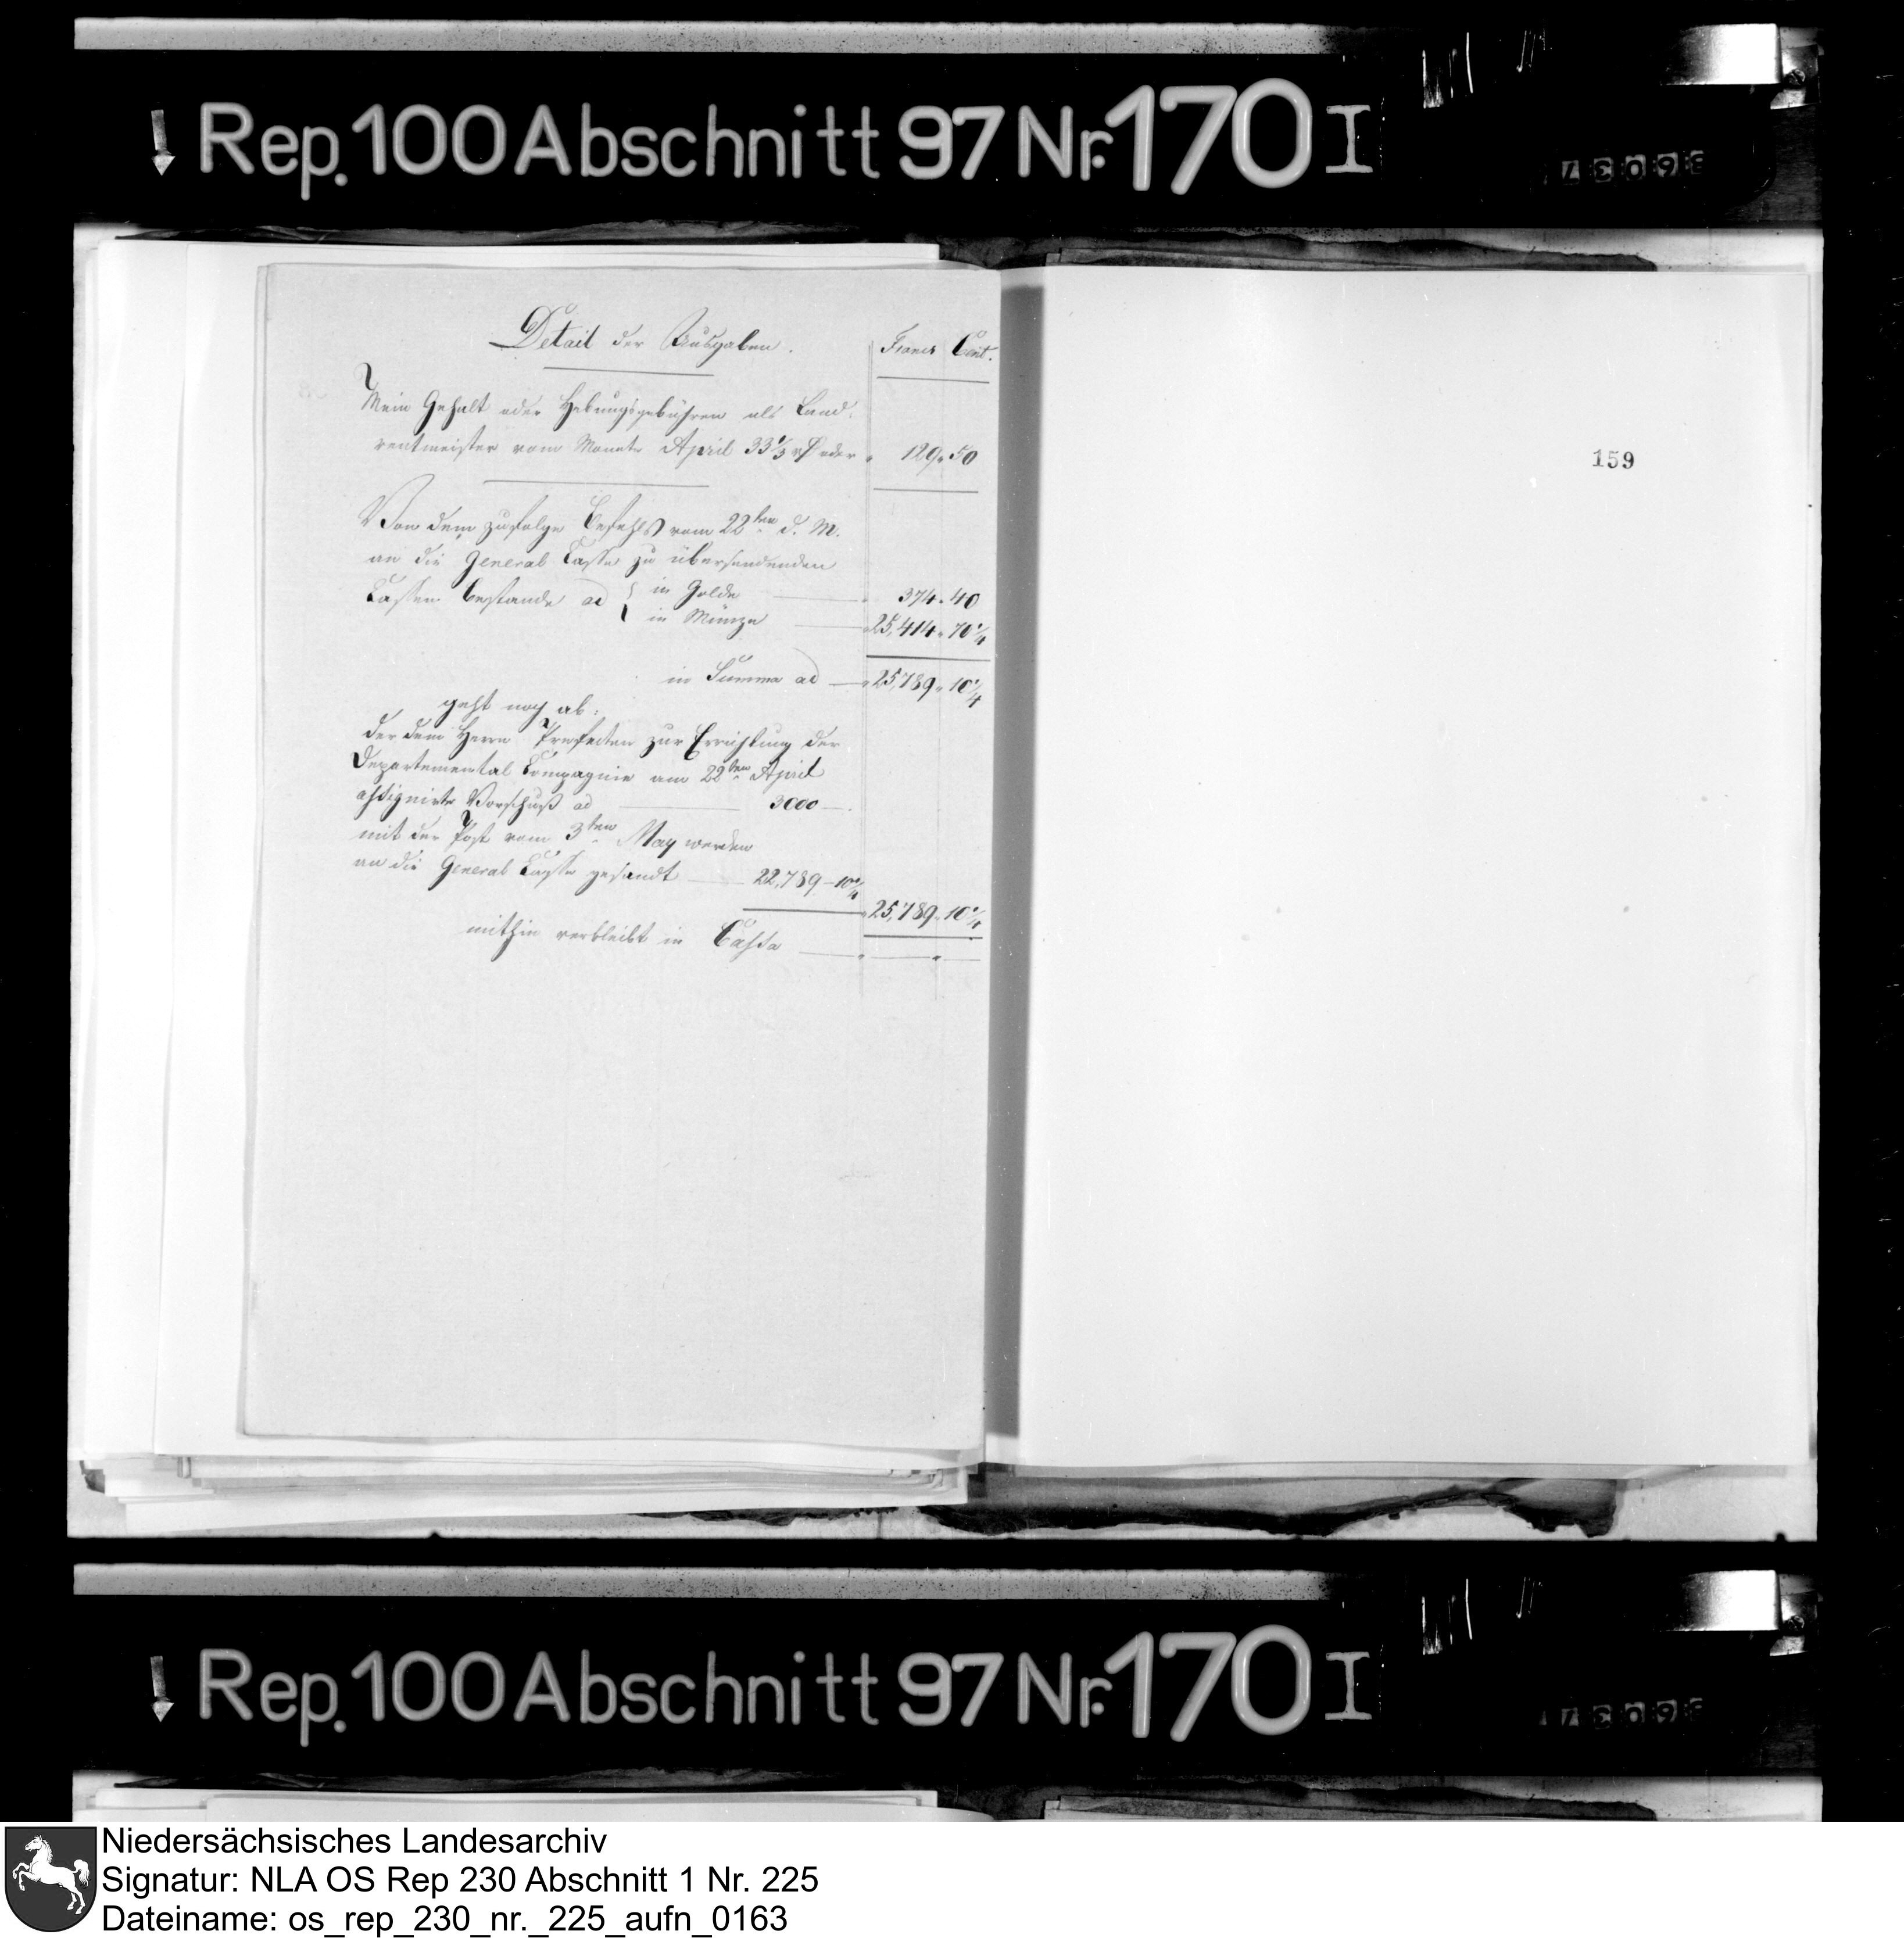 Rep. 100 Abschnitt 97 Nr. 170 I
36037
Detail der Ausgaben.
Francs Cent.
Mein Gehalt oder Hebungsgebühren als Land-
rentmeister vom Monate April 33⅓ rh oder 129. 50
Von dem zufolge Befehls vom 22ten d. M.
an die General Casse zu übersendenden
Cassen bestande ad { in Golde — 374. 40
in Münze — 25,414. 70¼
in Summa ad — 25,789. 10¼
geht noch ab:
der dem Herrn Praefecten zur Errichtung der
Departemental Compagnie am 22ten April
assignirte Vorschuß ad — 3000 —.
mit der Post vom 3ten May werden
an die General Casse gesandt — 22,789 – 10¼
25,789. 10¼
mithin verbleibt in Cassa — — —
159
Rep. 100 Abschnitt 97 Nr. 170 I
Niedersächsisches Landesarchiv
Signatur: NLA OS Rep 230 Abschnitt 1 Nr. 225
Dateiname: os_rep_230_nr._225_aufn_0163